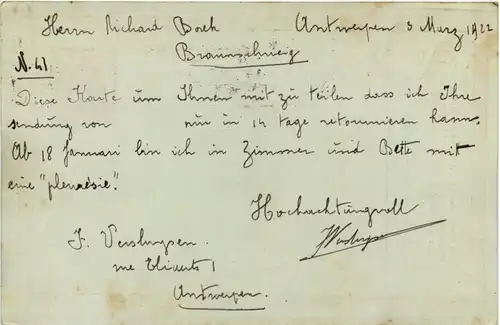 Herrn Richard Bock Antwerpen 3 Marz 1922
Braunschweig
N. 41
Diese Karte um Ihnen mit zu teilen dass ich Ihre
sendung von nur in 14 tage retournieren kann.
Ab 18 Januari bin ich in Zimmer und Bette mit
eine "pleuresie".
Hochachtungvoll
F. Verslugsen.
Antwerpen.